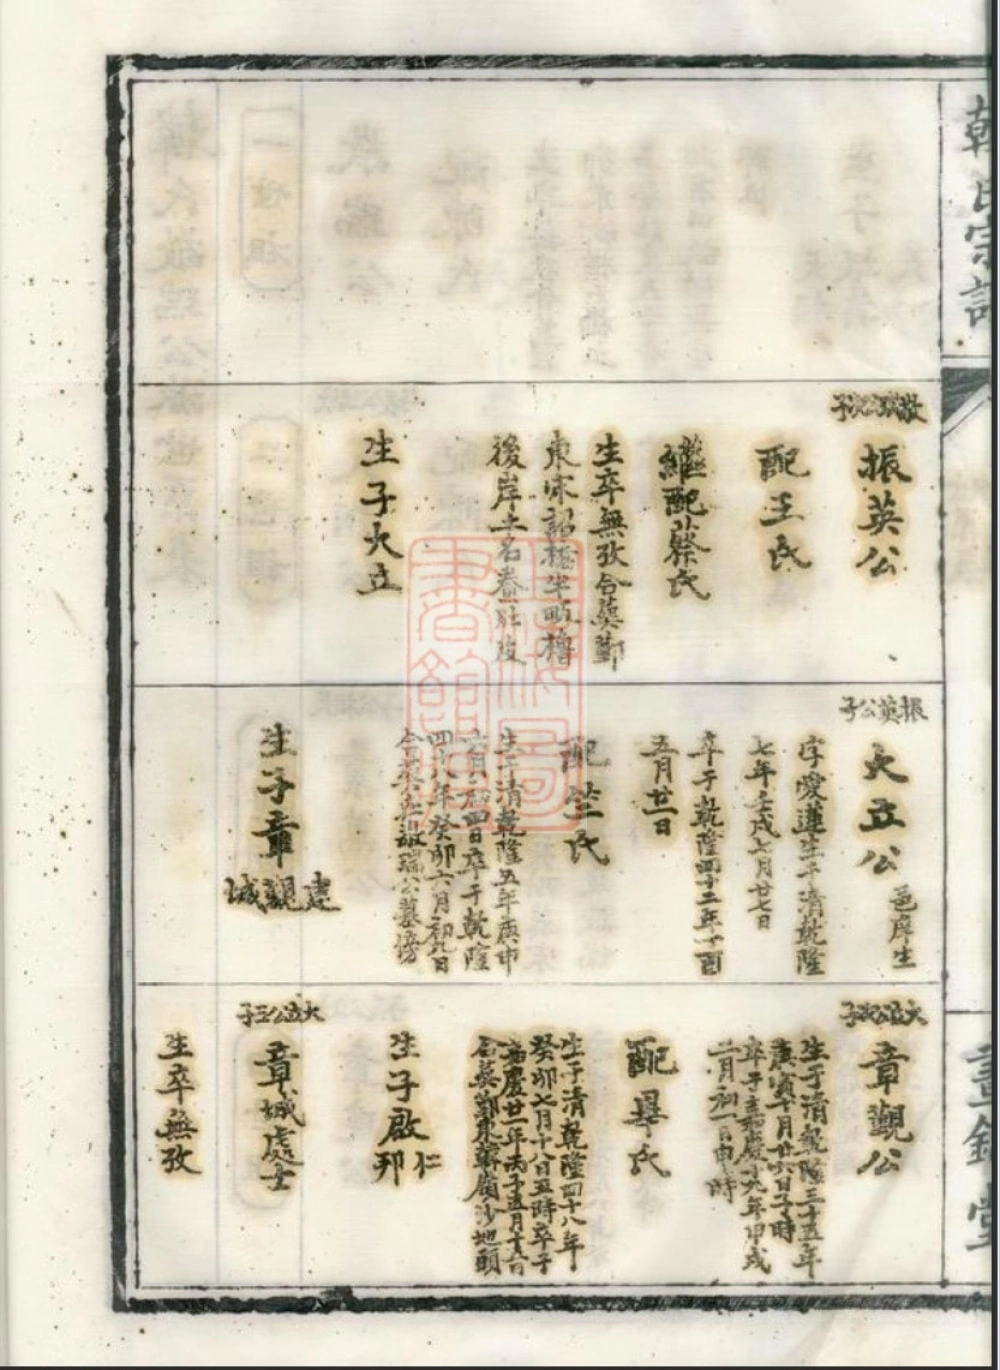 韓氏宗譜
畫錦堂
敬瑞公次子
振英公
配王氏
繼配蔡氏
生卒無攷合葬鄞
東宋詔橋半畞
後岸土名肚皮
生子大立
振英公子
大立公
邑庠生
字愛蓮生于清乾隆
七年壬戌七月廿七日
卒于乾隆四十二年丁酉
五月廿一日
配氏
生于清乾隆五年庚申
月初四日卒于乾隆
四十八年癸卯六月初九日
合葬敬瑞公墓傍
生子章
建觀城
大立公次子
章觀公
生于清乾隆三十五年
庚寅十月廿六日子時
卒于嘉慶十九年甲戌
二月初一日申時
配畢氏
生于清乾隆四十八年
癸卯七月十八日五時卒于
嘉慶廿一年丙子五月十六日
合葬鄞東韓嶺沙地頭
生子啟
仁邦
大立公三子
章城處士
生卒無攷
上海圖書館藏